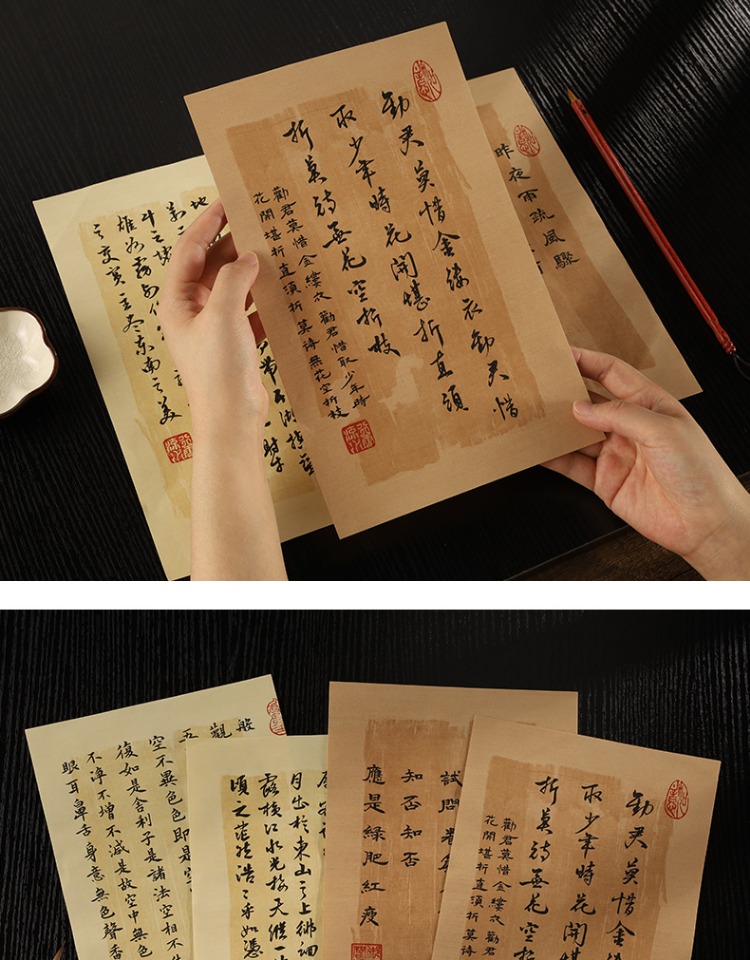 昨夜雨疏風驟
勸君莫惜金縷衣勸君惜
取少年時花開堪折直須
折莫待無花空折枝
勸君莫惜金縷衣 勸君惜取少年時
花開堪折直須折 莫待無花空折枝
地
斗之墟
雄州霧列
之交賓主盡東南之美
勸君莫惜金
取少年時花開
折莫待無花空折
勸君莫惜金縷衣 勸君
花開堪折直須折 莫待
試問卷
知否知否
應是綠肥紅瘦
月出於東山之上徘徊
露橫江水光接天縱一
頃之茫然浩浩乎如憑
般
觀
五
空不異色色即是空
復如是舍利子是諸法空相不
不淨不增不滅是故空中無色
眼耳鼻舌身意無色聲香